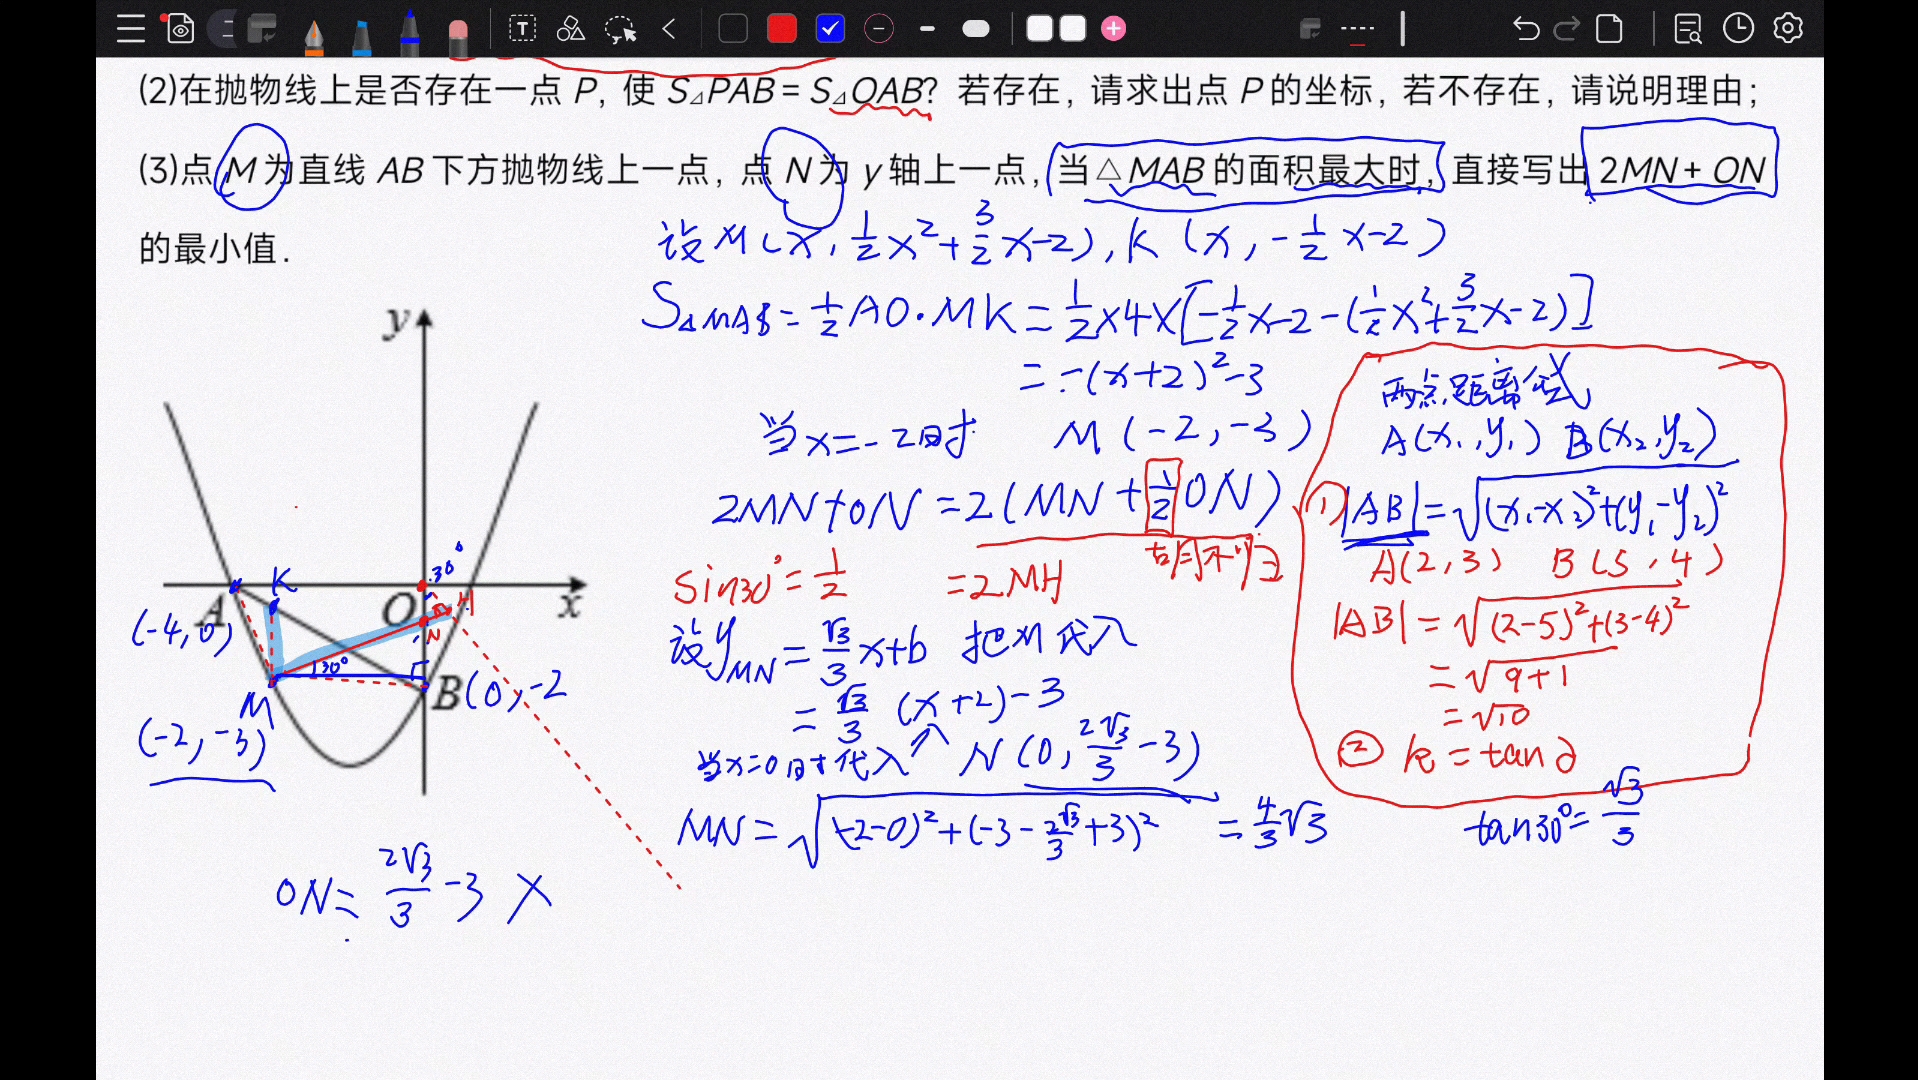 (2)在抛物线上是否存在一点 P, 使 S⊿PAB = S⊿OAB? 若存在, 请求出点 P 的坐标, 若不存在, 请说明理由;
(3)点 M 为直线 AB 下方抛物线上一点, 点 N 为 y 轴上一点, 当△MAB 的面积最大时, 直接写出 2MN + ON
的最小值.
设 M(x, 1/2x²+3/2x-2), K (x, -1/2x-2)
S△MAB = 1/2AO·MK = 1/2×4×[-1/2x-2-(1/2x²+3/2x-2)]
= -(x+2)²-3
当x=-2时 M(-2,-3)
2MN+ON = 2(MN+1/2ON)
sin30°=1/2 =2MH
设yMN = √3/3x+b 把M代入
= √3/3 (x+2)-3
当x=0时代入 N(0, 2√3/3-3)
MN = √(-2-0)²+(-3-2√3/3+3)² = 4/3√3
两点距离公式
A(x₁,y₁) B(x₂,y₂)
① |AB|=√(x₁-x₂)²+(y₁-y₂)²
A(2,3) B(5,4)
|AB|=√(2-5)²+(3-4)²
=√9+1
=√10
② k=tanα
tan30°=√3/3
y
x
A
K
O
30°
H
N
(-4,0)
30°
M
B(0,-2
(-2,-3)
ON= 2√3/3-3 ×